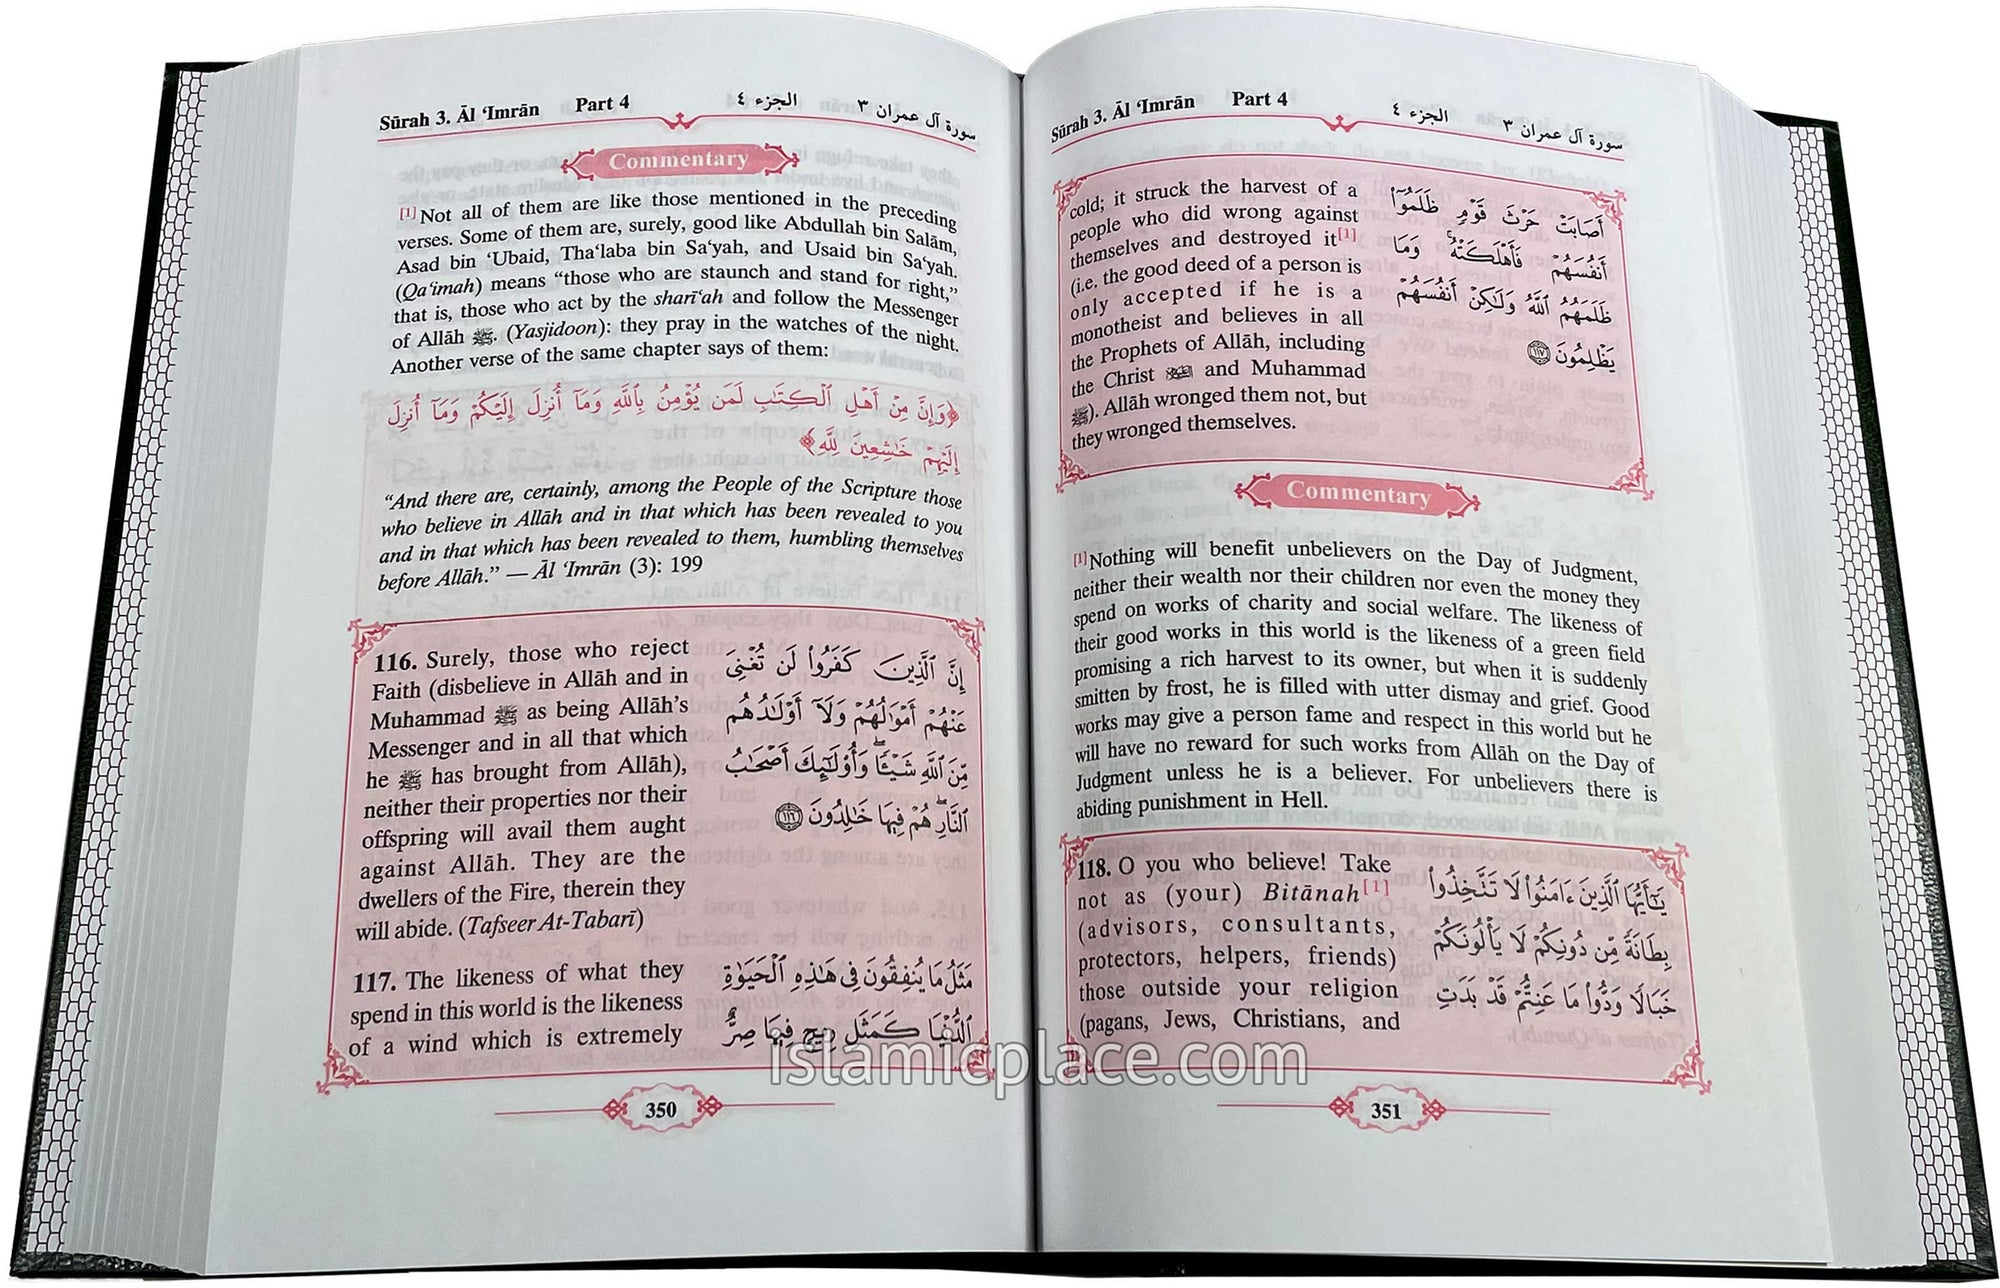 Sūrah 3. Āl ‘Imrān Part 4 الجزء ٤ سورة آل عمران ٣
Commentary
[1]Not all of them are like those mentioned in the preceding
verses. Some of them are, surely, good like Abdullah bin Salām,
Asad bin ‘Ubaid, Tha‘laba bin Sa‘yah, and Usaid bin Sa‘yah.
(Qa‘imah) means “those who are staunch and stand for right,”
that is, those who act by the sharī‘ah and follow the Messenger
of Allāh ﷺ. (Yasjidoon): they pray in the watches of the night.
Another verse of the same chapter says of them:
﴿وَإِنَّ مِنْ أَهْلِ ٱلْكِتَـٰبِ لَمَن يُؤْمِنُ بِٱللَّهِ وَمَآ أُنزِلَ إِلَيْكُمْ وَمَآ أُنزِلَ
إِلَيْهِمْ خَـٰشِعِينَ لِلَّهِ﴾
“And there are, certainly, among the People of the Scripture those
who believe in Allāh and in that which has been revealed to you
and in that which has been revealed to them, humbling themselves
before Allāh.” — Āl ‘Imrān (3): 199
116. Surely, those who reject
Faith (disbelieve in Allāh and in
Muhammad ﷺ as being Allāh’s
Messenger and in all that which
he ﷺ has brought from Allāh),
neither their properties nor their
offspring will avail them aught
against Allāh. They are the
dwellers of the Fire, therein they
will abide. (Tafseer At-Tabarī)
إِنَّ ٱلَّذِينَ كَفَرُوا۟ لَن تُغْنِىَ
عَنْهُمْ أَمْوَٰلُهُمْ وَلَآ أَوْلَـٰدُهُم
مِّنَ ٱللَّهِ شَيْـًٔا ۖ وَأُو۟لَـٰٓئِكَ أَصْحَـٰبُ
ٱلنَّارِ ۚ هُمْ فِيهَا خَـٰلِدُونَ ١١٦
117. The likeness of what they
spend in this world is the likeness
of a wind which is extremely
مَثَلُ مَا يُنفِقُونَ فِى هَـٰذِهِ ٱلْحَيَوٰةِ
ٱلدُّنْيَا كَمَثَلِ رِيحٍ فِيهَا صِرٌّ
350
Sūrah 3. Āl ‘Imrān Part 4 الجزء ٤ سورة آل عمران ٣
cold; it struck the harvest of a
people who did wrong against
themselves and destroyed it[1]
(i.e. the good deed of a person is
only accepted if he is a
monotheist and believes in all
the Prophets of Allāh, including
the Christ and Muhammad
ﷺ). Allāh wronged them not, but
they wronged themselves.
أَصَابَتْ حَرْثَ قَوْمٍ ظَلَمُوٓا۟
أَنفُسَهُمْ فَأَهْلَكَتْهُ ۚ وَمَا
ظَلَمَهُمُ ٱللَّهُ وَلَـٰكِنْ أَنفُسَهُمْ
يَظْلِمُونَ ١١٧
Commentary
[1]Nothing will benefit unbelievers on the Day of Judgment,
neither their wealth nor their children nor even the money they
spend on works of charity and social welfare. The likeness of
their good works in this world is the likeness of a green field
promising a rich harvest to its owner, but when it is suddenly
smitten by frost, he is filled with utter dismay and grief. Good
works may give a person fame and respect in this world but he
will have no reward for such works from Allāh on the Day of
Judgment unless he is a believer. For unbelievers there is
abiding punishment in Hell.
118. O you who believe! Take
not as (your) Bitānah[1]
(advisors, consultants,
protectors, helpers, friends)
those outside your religion
(pagans, Jews, Christians, and
يَـٰٓأَيُّهَا ٱلَّذِينَ ءَامَنُوا۟ لَا تَتَّخِذُوا۟
بِطَانَةً مِّن دُونِكُمْ لَا يَأْلُونَكُمْ
خَبَالًا وَدُّوا۟ مَا عَنِتُّمْ قَدْ بَدَتِ
351
islamicplace.com